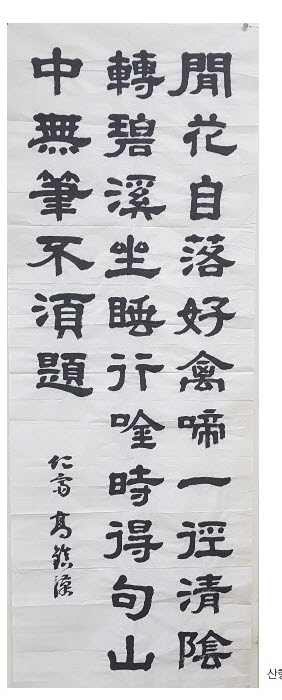 閒花自落好禽啼一徑清陰
轉碧溪坐睡行唫時得句山
中無筆不須題
仁齋 高鎭漢
산행